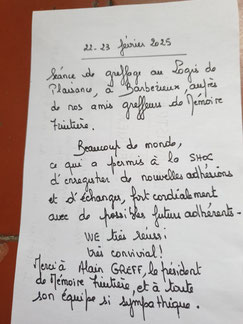 22-23 février 2025
Séance de greffage au Logis de
Plaisance, à Barbezieux, auprès
de nos amis greffeurs de Mémoire
Fruitière.
Beaucoup de monde,
ce qui a permis à la SHOC
d'enregistrer de nouvelles adhésions
et d'échanger, fort cordialement
avec de possibles futurs adhérents -
WE très réussi
très convivial!
Merci à Alain GREFF, le président
de Mémoire Fruitière, et à toute
son équipe si sympathique.